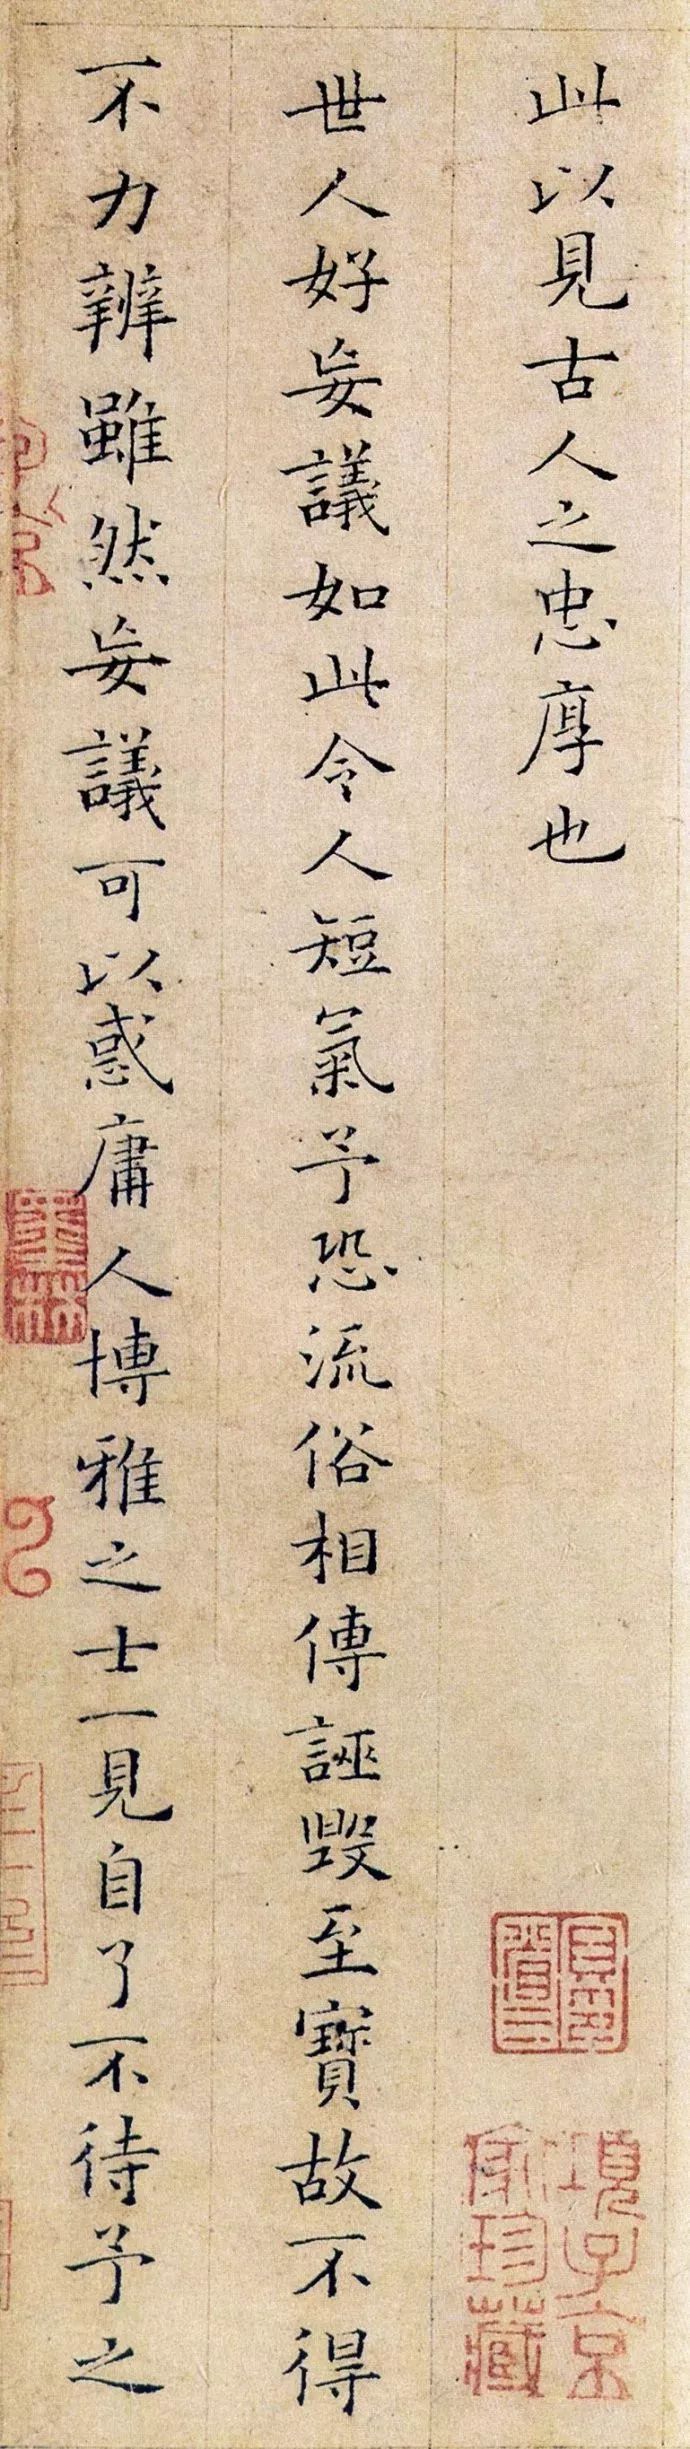 此以見古人之忠厚也
世人好妄議如此令人短氣予恐流俗相傳誣毀至寶故不得
不力辨雖然妄議可以惑庸人博雅之士一見自了不待予之
項子京
家珍藏
墨林